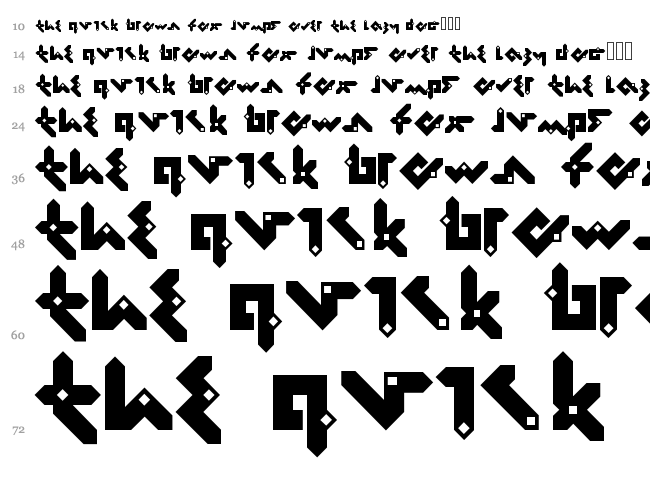 10 the quick brown fox jumps over the lazy dog
14 the quick brown fox jumps over the lazy dog
18 the quick brown fox jumps over the lazy
24 the quick brown fox jumps
36 the quick brown
48 the quick
60 the quick
72 the quick